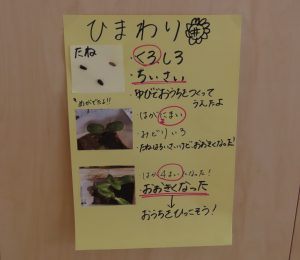 ひまわり
たね
・くろしろ
・ちいさい
・ゆびでおうちをつくって
うえたよ
めがでたよ!!
・はが にまい
・みどりいろ
・たねはちいさいけど、おおきくなった!
・はが 4まいになった!
・おおきくなった
↓
おうちをひっこそう!